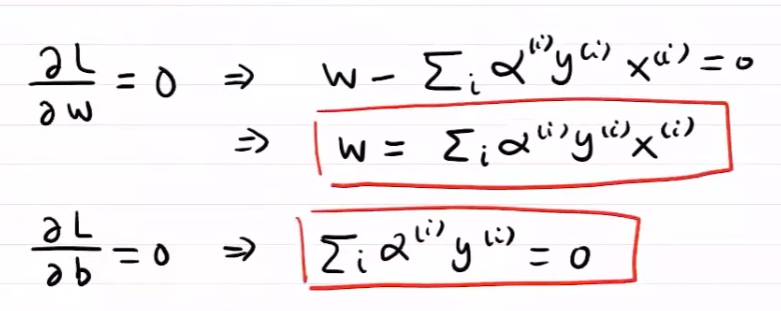 ∂L/∂w = 0 ⇒ w − Σᵢ α⁽ⁱ⁾y⁽ⁱ⁾ x⁽ⁱ⁾ = 0
⇒ w = Σᵢ α⁽ⁱ⁾y⁽ⁱ⁾x⁽ⁱ⁾
∂L/∂b = 0 ⇒ Σᵢ α⁽ⁱ⁾ y⁽ⁱ⁾ = 0